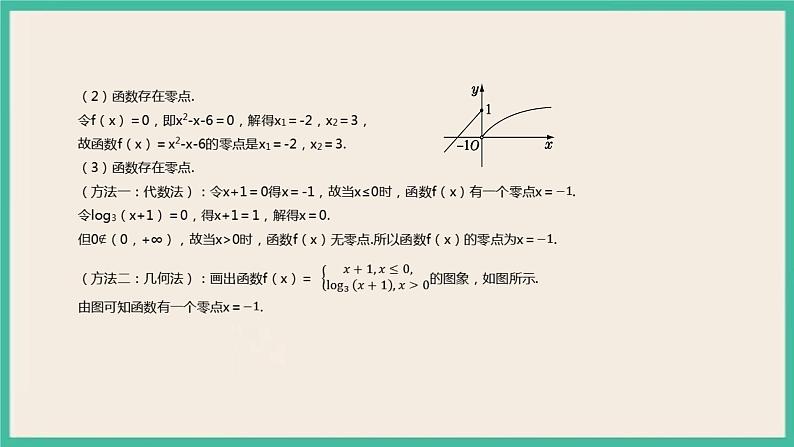 （2）函数存在零点.
令f（x）＝0，即x²-x-6＝0，解得x₁＝-2，x₂＝3，
故函数f（x）＝x²-x-6的零点是x₁＝-2，x₂＝3.
（3）函数存在零点.
（方法一：代数法）：令x+1＝0得x＝-1，故当x≤0时，函数f（x）有一个零点x＝−1.
令log₃（x+1）＝0，得x+1＝1，解得x＝0.
但0∉（0，+∞），故当x>0时，函数f（x）无零点.所以函数f（x）的零点为x＝−1.
（方法二：几何法）：画出函数f（x）＝ { x + 1, x ≤ 0, log₃ (x + 1), x > 0 的图象，如图所示.
由图可知函数有一个零点x＝−1.
y
1
−1 O x